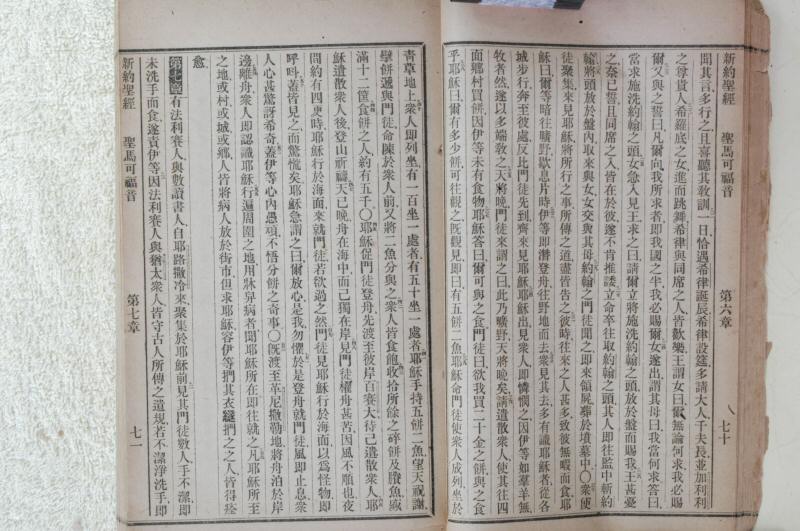 新約聖經 聖馬可福音 第六章 七十
聞其言多行之且喜聽其敎訓一日恰遇希律誕辰希律設筵多請大人千夫長並加利利
之尊貴人希羅底之女進而跳舞希律與同席之人皆歡樂王謂女曰爾無論何求我必賜
爾又與之誓曰凡爾向我所求者卽我國之半我必賜爾女遂出謂其母曰我當何求答曰
當求施洗約翰之頭女急入見王求之曰請爾立將施洗約翰之頭放於盤而賜我王甚憂
之柰已誓且同席之人皆在於彼遂不肯推諉立命卒往取約翰之頭其人卽往監中斬約
翰將頭放於盤內取來與女女交與其母約翰之門徒聞之卽來領屍葬於墳墓中〇眾使
徒聚集來見耶穌將所行之事所傳之道盡皆告之彼時往來之人甚多致彼無暇而食耶
穌曰爾等暗往曠野歇息片時伊等卽潛登舟往野地而去眾見其去多有識耶穌者從各
城步行奔至彼處反比門徒先到齊來見耶穌耶穌出見眾人卽憐憫之因伊等如羣羊無
牧者然遂以多端敎之天將晚門徒來謂之曰此乃曠野天將晚矣請遣散眾人使其往四
面鄉村買餅因伊等未有食物耶穌答曰爾可與之食門徒曰欲我買二十金之餅與之食
乎耶穌曰爾有多少餅可往觀之旣觀見卽曰有五餅二魚耶穌命門徒使眾人成列坐於
青草地上眾人卽列坐有一百坐一處者有五十坐一處者耶穌手持五餅二魚望天祝謝
擘餅遞與門徒命陳於眾人前又將二魚分與之眾人皆食飽收拾所餘之碎餅及賸魚盛
滿十二筐食餅之人約有五千〇耶穌促門徒登舟先渡至彼岸百賽大待己遣散眾人耶
穌遣散眾人後登山祈禱天已晚舟在海中而己獨在岸見門徒櫂舟甚苦因風不順也夜
間約有四更時耶穌行於海面來就門徒若欲過之然門徒見耶穌行於海面以爲怪物卽
呼呌蓋皆見之而驚慌矣耶穌急謂之曰爾放心是我勿懼於是登舟就門徒風卽止息眾
人心甚驚訝希奇蓋伊等心內愚頑不悟分餅之奇事〇旣渡至革尼撒勒地將舟泊於岸
邊離舟眾人卽認識耶穌行遍周圍之地用牀舁病者聞耶穌所在卽往就之凡耶穌所至
之地或村或城或鄉人皆將病人放於街市但求耶穌容伊等捫其衣䙢捫之之人皆得痊
愈
第七章有法利賽人與數讀書人自耶路撒冷來聚集於耶穌前見其門徒數人手不潔卽
未洗手而食遂責伊等因法利賽人與猶太眾人皆守古人所傳之遺規若不潔淨洗手卽
新約聖經 聖馬可福音 第七章 七一